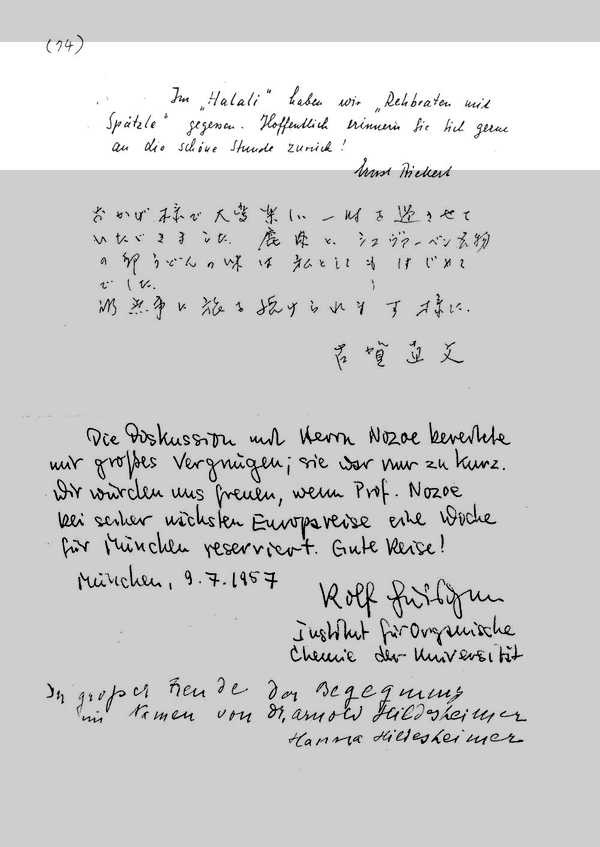 (74)
Im „Halali“ haben wir „Rehbraten mit
Spätzle“ gegessen. Hoffentlich erinnern Sie sich gerne
an die schöne Stunde zurück!
Ernst Biekert
おかげ様で大変楽しい一時を過させて
いただきました。鹿肉と、シュヴァーベン名物
の卵うどんの味は私としてもはじめて
でした。
御無事に旅を続けられます様に。
直文
Die Diskussion mit Herrn Nozoe bereitete
mir großes Vergnügen; sie war nur zu kurz.
Wir würden uns freuen, wenn Prof. Nozoe
bei seiner nächsten Europareise eine Woche
für München reserviert. Gute Reise!
München, 9.7.1957
Rolf Huisgen
Institut für Organische
Chemie der Universität
In großer Freude der Begegnung
im Namen von Dr. Arnold Hildesheimer
Hanna Hildesheimer